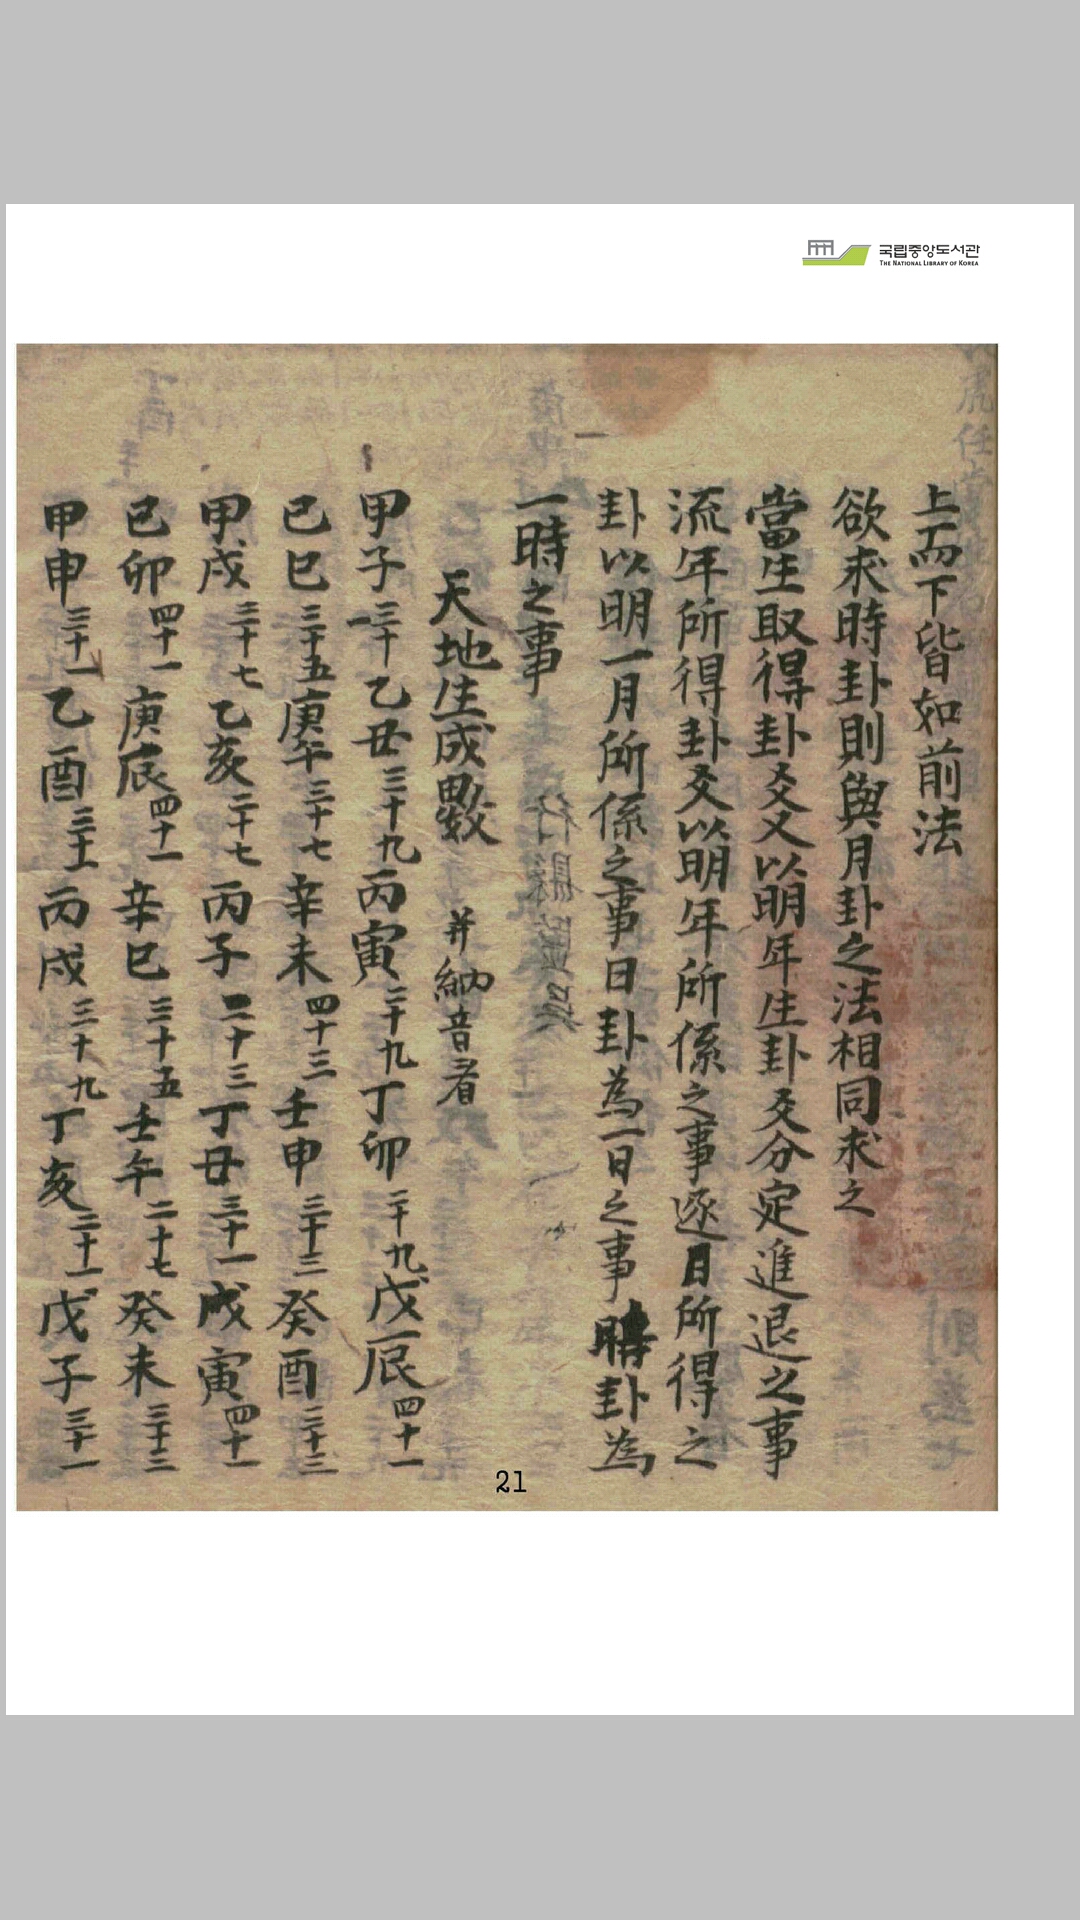 국립중앙도서관
THE NATIONAL LIBRARY OF KOREA
上而下皆如前法
欲求時卦則與月卦之法相同求之
當生取得卦爻又以明年生卦爻分定進退之事
流年所得卦爻以明年所係之事逐日所得之
卦以明一月所係之事日卦為一日之事時卦為
一時之事
天地生成數 并納音看
甲子三十一乙丑三十九丙寅二十九丁卯二十九戊辰四十一
己巳三十五庚午三十七辛未四十三壬申三十三癸酉二十三
甲戌三十七乙亥二十七丙子二十三丁丑三十一戊寅四十一
己卯四十一庚辰四十一辛巳三十五壬午二十七癸未三十三
甲申三十一乙酉三十一丙戌三十九丁亥二十一戊子三十一
21